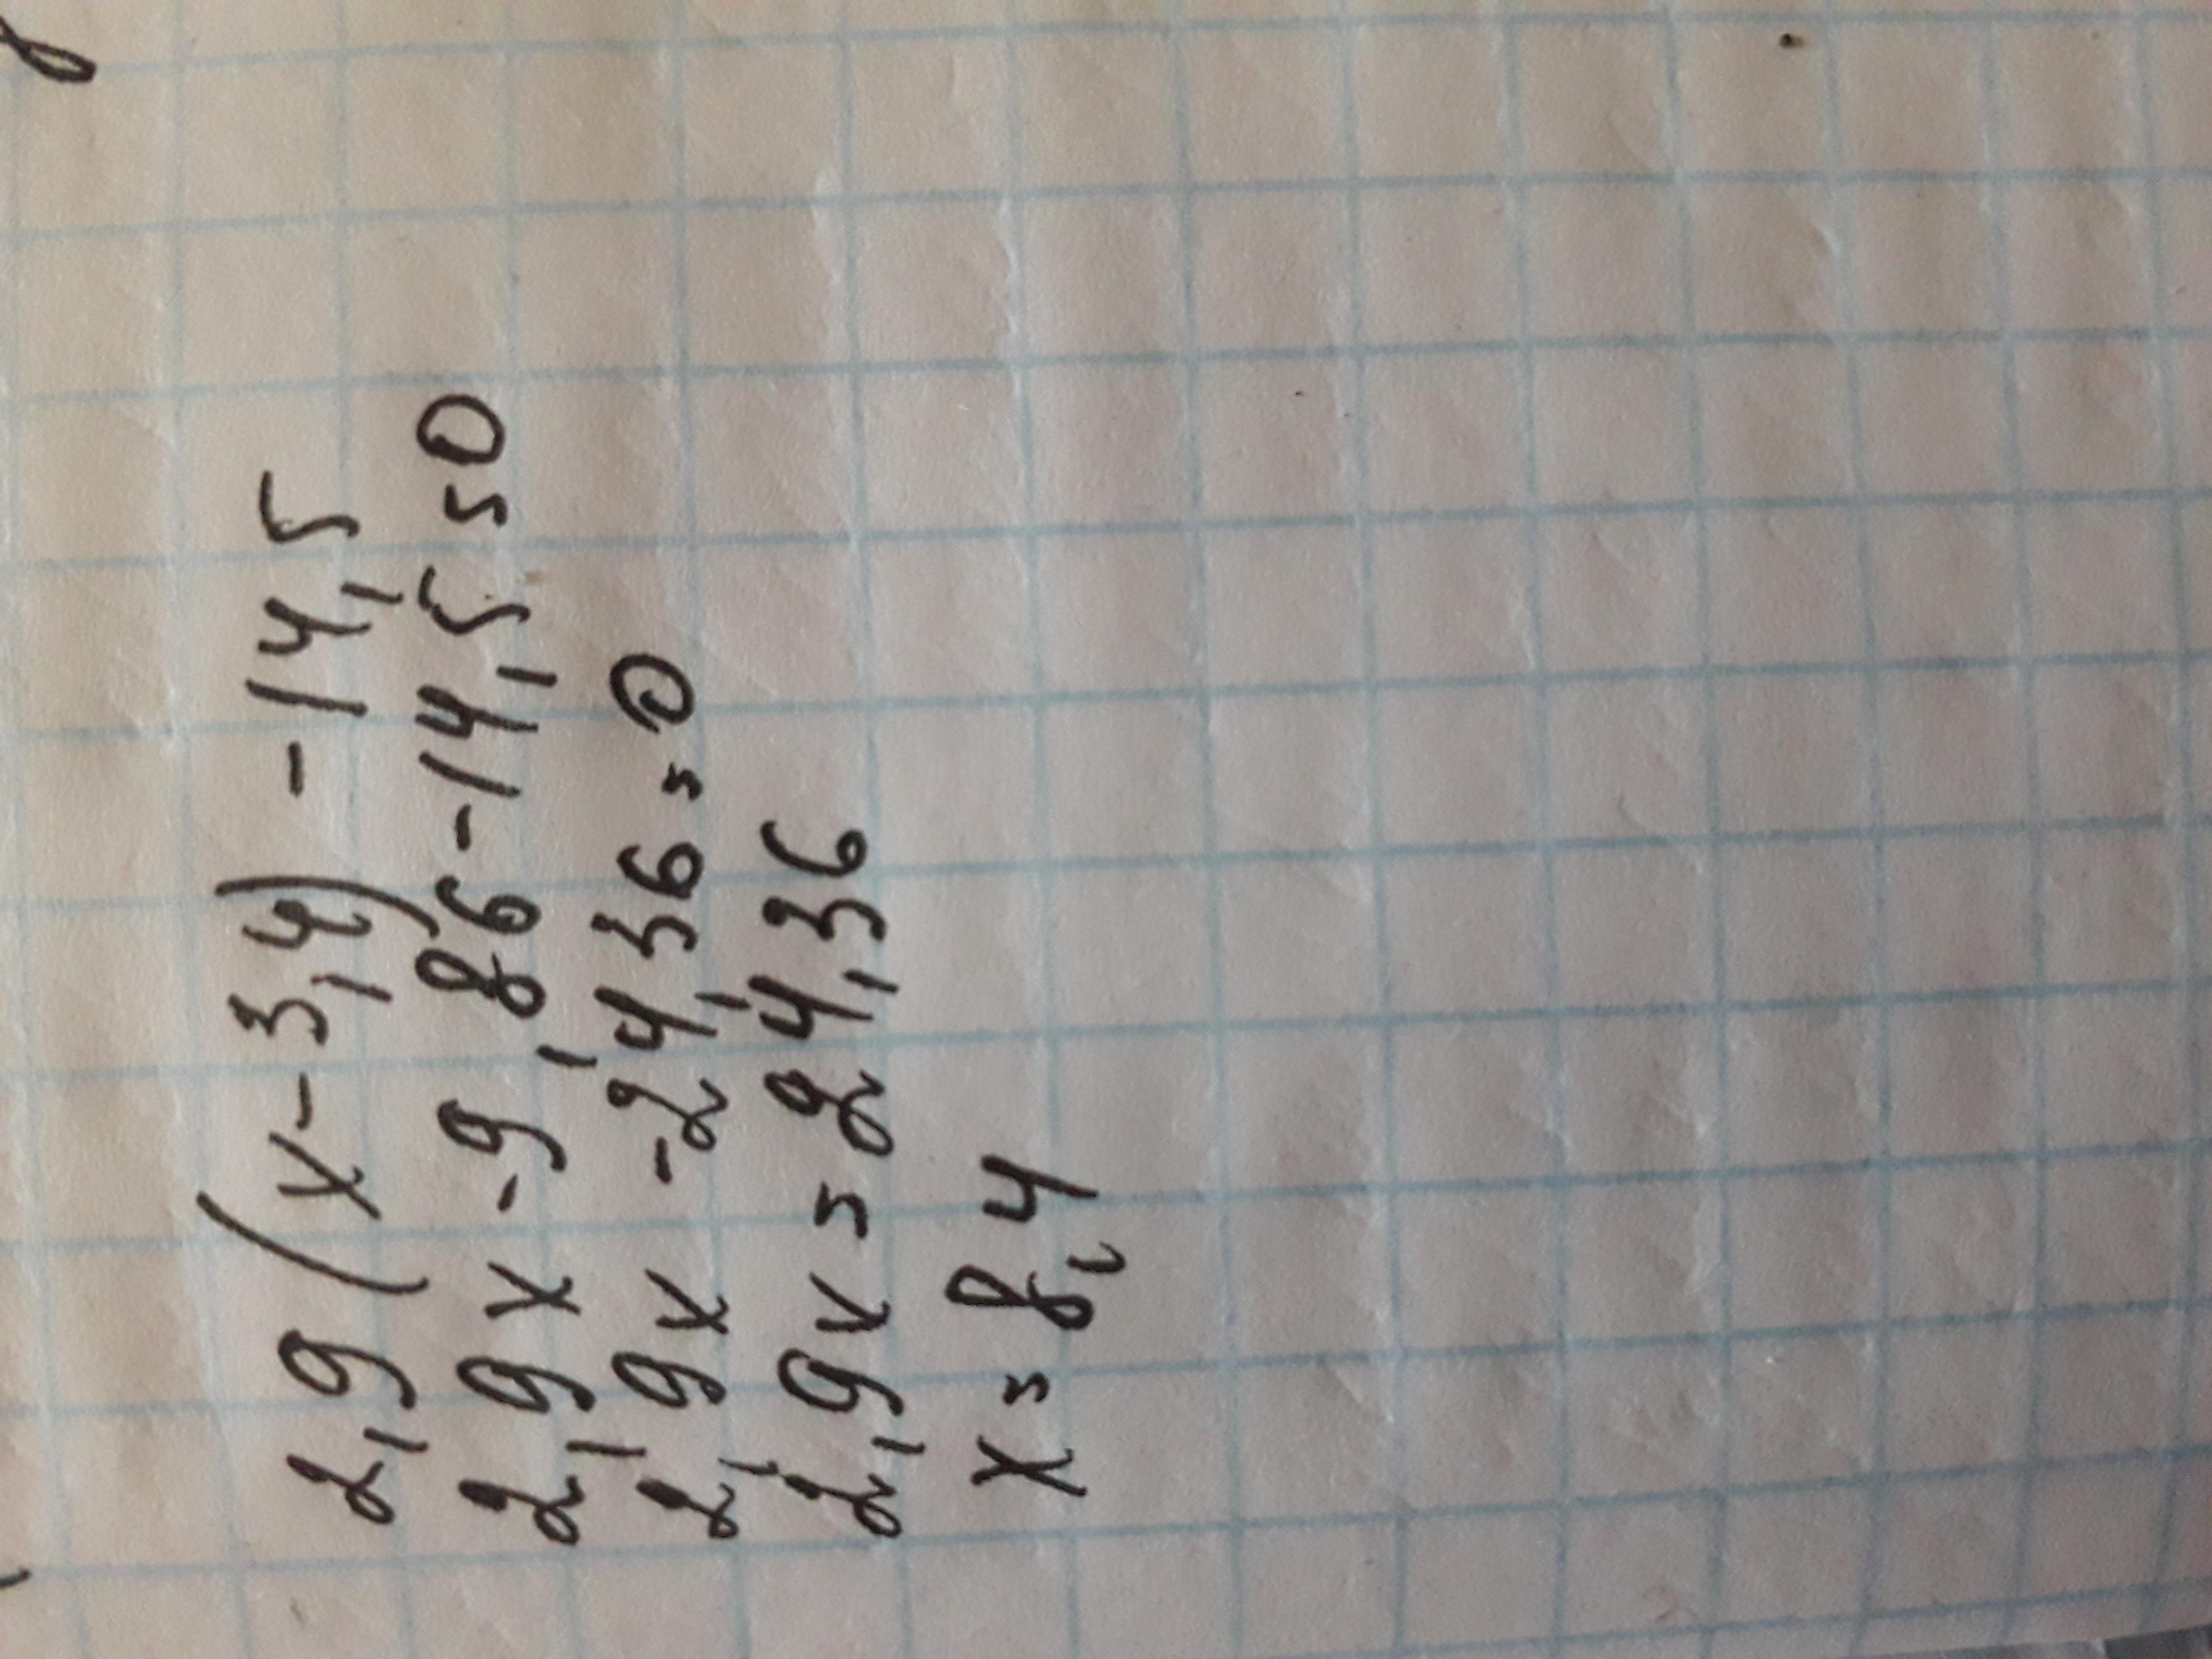 2,9(x-3,4) -14,5
2,9x-9,86-14,5=0
2,9x-24,36=0
2,9x=24,36
x=8,4